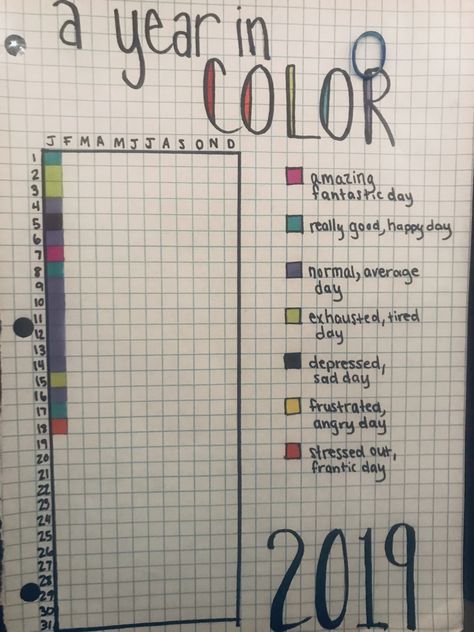 a year in
COLOR
J F M A M J J A S O N D
1
2
3
4
5
6
7
8
9
10
11
12
13
14
15
16
17
18
19
20
21
22
23
24
25
26
27
28
29
30
31
amazing
fantastic day
really good, happy day
normal, average
day
exhausted, tired
day
depressed,
sad day
frustrated,
angry day
stressed out,
frantic day
2019